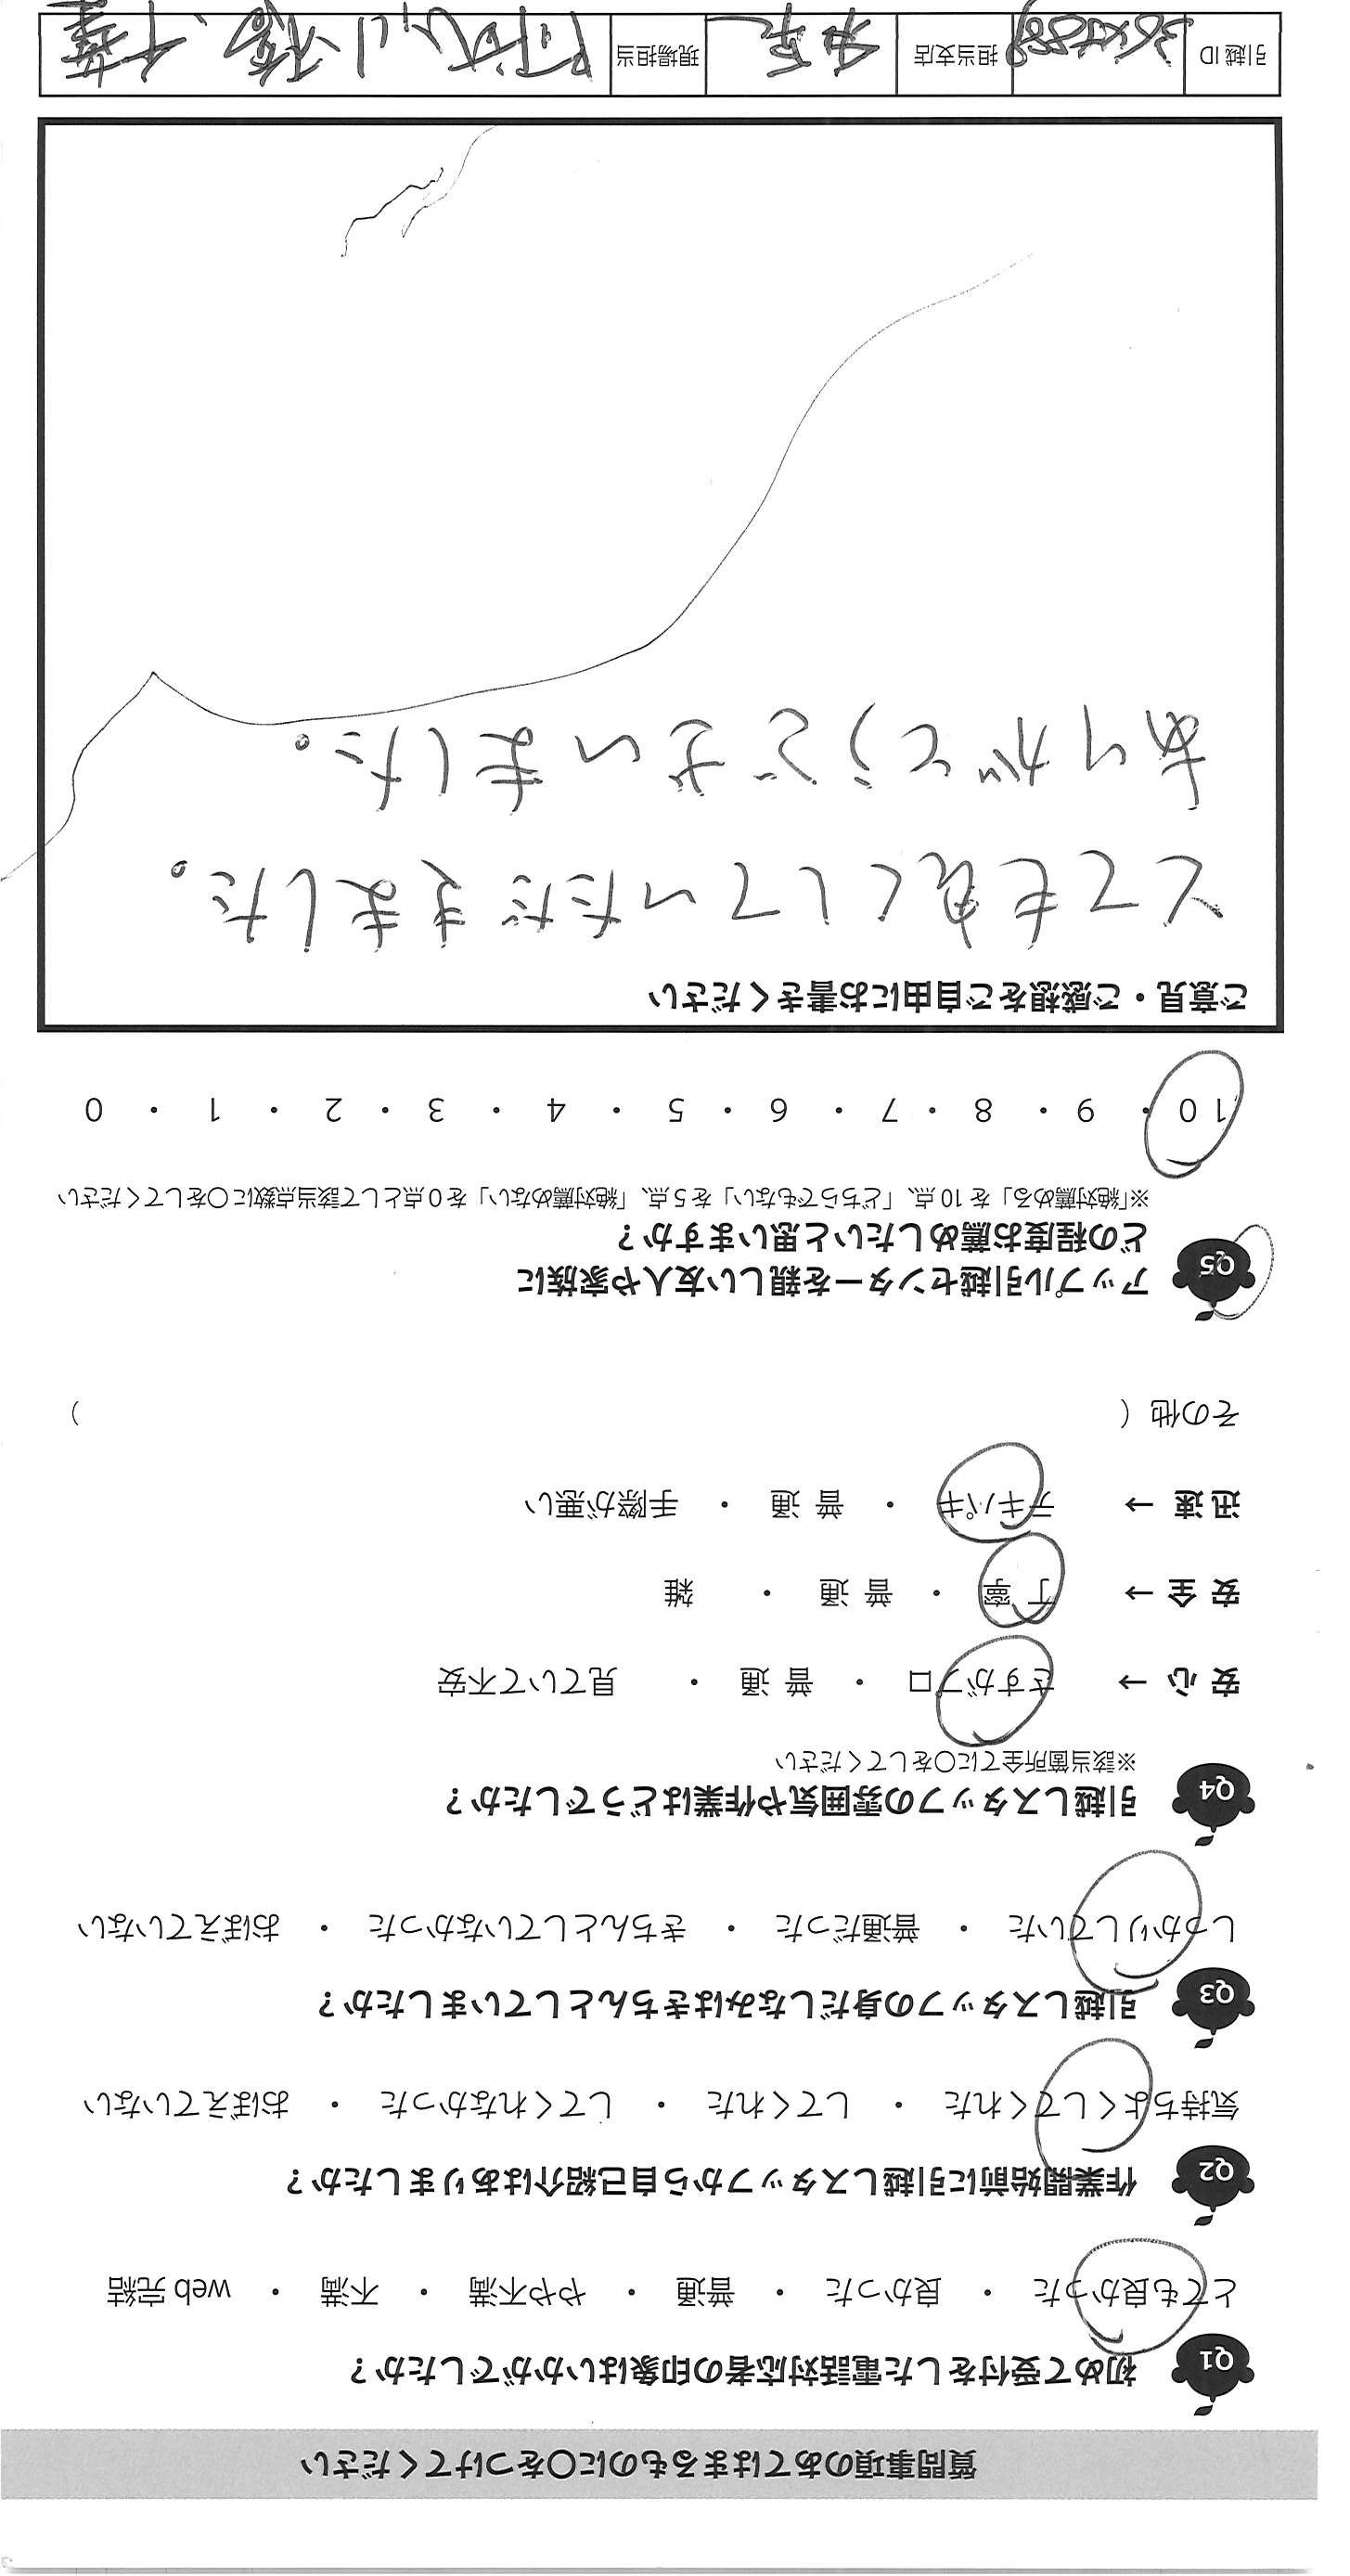 質問事項のあてはまるものに〇をつけてください
Q1 初めて受付をした電話対応者の印象はいかがでしたか？
とても良かった ・ 良かった ・ 普通 ・ やや不満 ・ 不満 ・ web 完結
Q2 作業開始前に引越しスタッフから自己紹介はありましたか？
気持ちよくしてくれた ・ してくれた ・ してくれなかった ・ おぼえていない
Q3 引越しスタッフの身だしなみはきちんとしていましたか？
しっかりしていた ・ 普通だった ・ きちんとしていなかった ・ おぼえていない
Q4 引越しスタッフの雰囲気や作業はどうでしたか？
※該当箇所全てに〇をしてください
安 心 → さすがプロ ・ 普 通 ・ 見ていて不安
安 全 → 丁 寧 ・ 普 通 ・ 雑
迅 速 → テキパキ ・ 普 通 ・ 手際が悪い
その他（ ）
Q5 アップル引越センターを親しい友人や家族に
どの程度お薦めしたいと思いますか？
※「絶対薦める」を 10 点、「どちらでもない」を 5 点、「絶対薦めない」を 0 点として該当点数に〇をしてください
10 ・ 9 ・ 8 ・ 7 ・ 6 ・ 5 ・ 4 ・ 3 ・ 2 ・ 1 ・ 0
ご意見・ご感想をご自由にお書きください
とても良くしていただきました。
ありがとうございました。
引越 ID 担当支店 現場担当